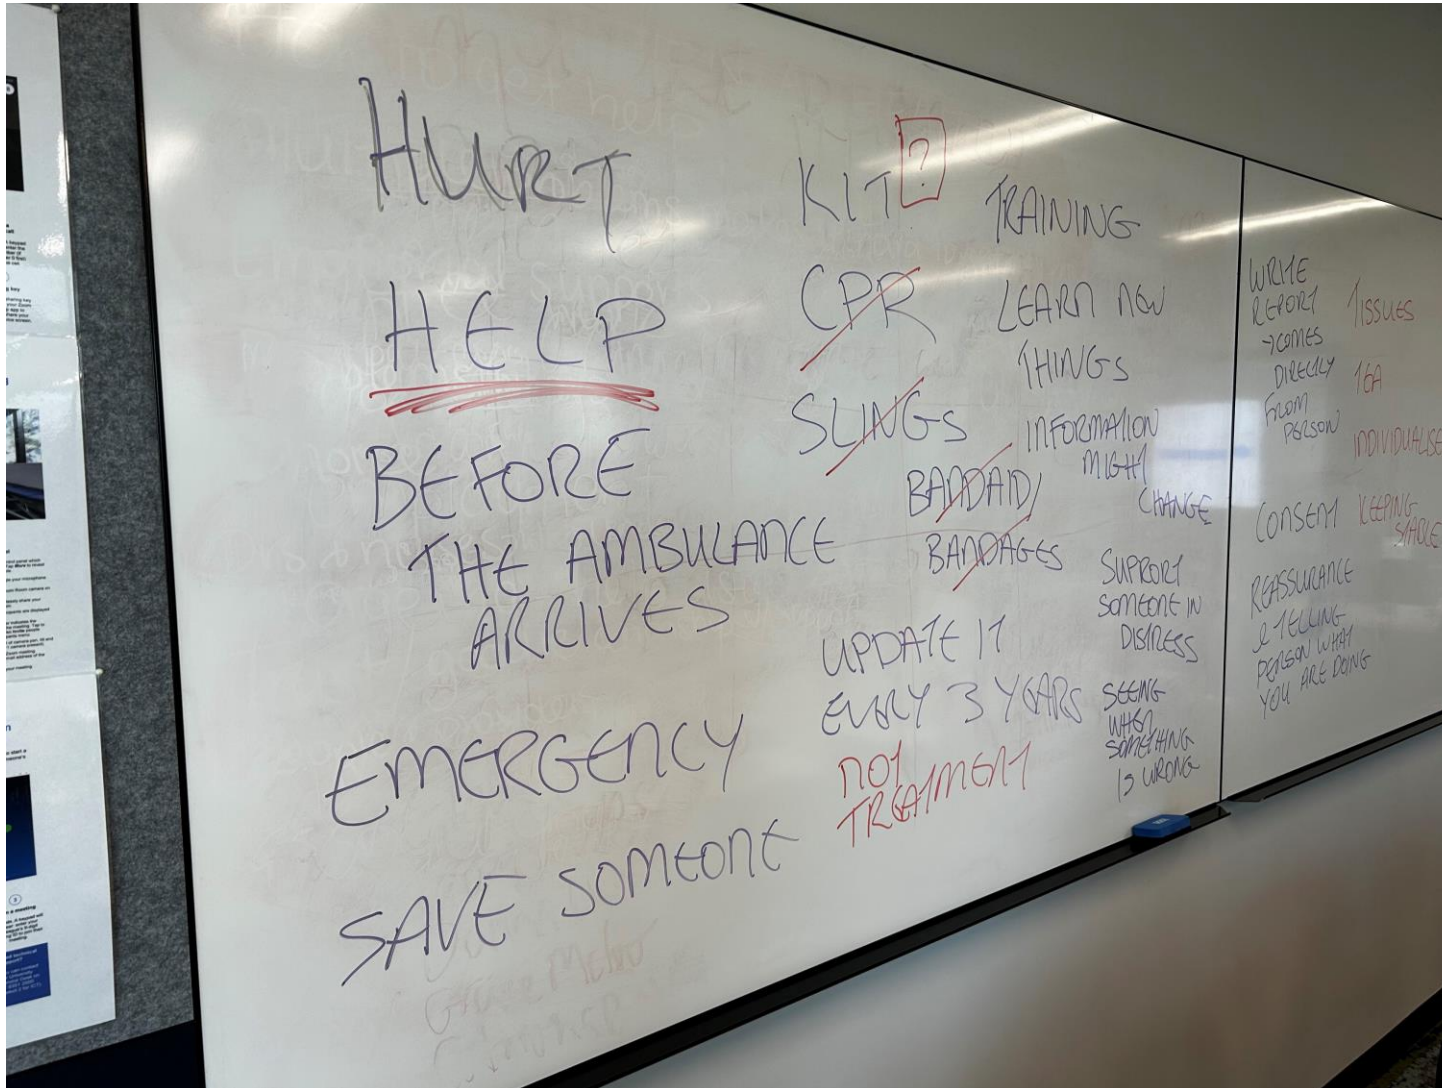 HURT
HELP
BEFORE
THE AMBULANCE
ARRIVES
EMERGENCY
SAVE SOMEONE
KIT ?
CPR
SLINGS
BANDAID/
BANDAGES
UPDATE IT
EVERY 3 YEARS
NOT
TREATMENT
TRAINING
LEARN NEW
THINGS
INFORMATION
MIGHT
CHANGE
SUPPORT
SOMEONE IN
DISTRESS
SEEING
WHEN
SOMETHING
IS WRONG
WRITE
REPORT
→COMES
DIRECTLY
FROM
PERSON
CONSENT
REASSURANCE
& TELLING
PERSON WHAT
YOU ARE DOING
INDIVIDUALISE
KEEPING
STABLE